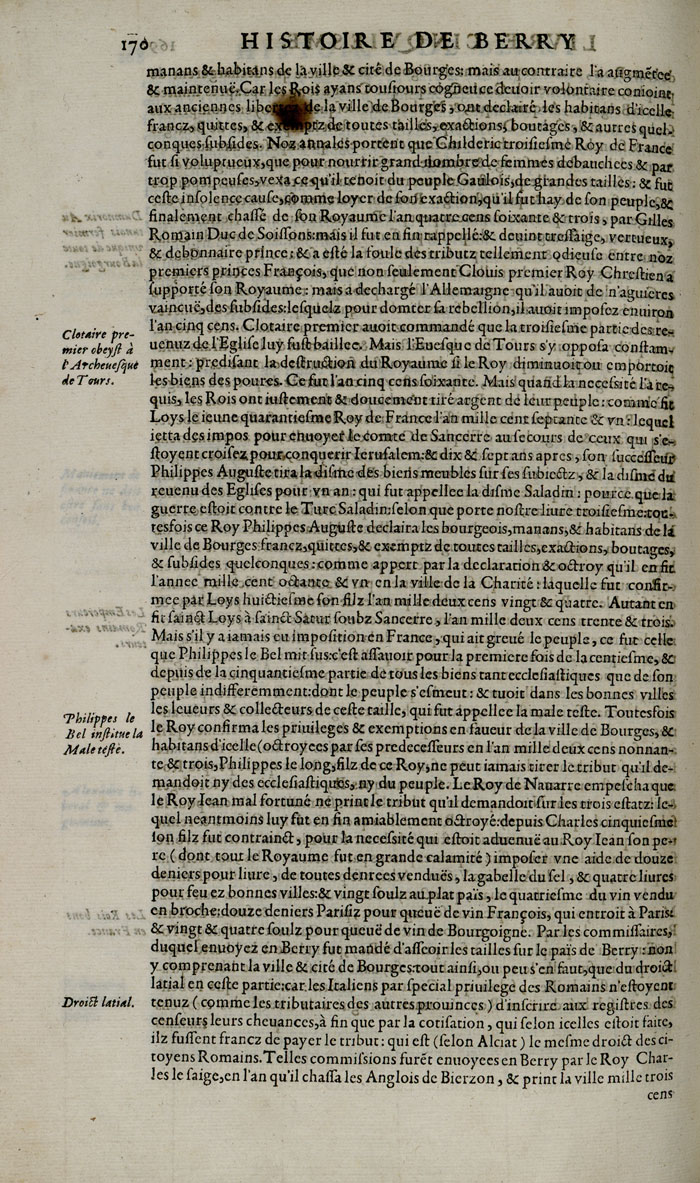 170 HISTOIRE DE BERRY
manans & habitans de la ville & cité de Bourges: mais au contraire l'a augmẽtée,
& maintenuë. Car les Rois ayans tousiours cogneu ce deuoir volontaire conioint
aux anciennes de la ville de Bourges, ont declairé les habitans d'icelle
francz, quittes, & exemptz de toutes tailles, exactions, boutages, & autres quel-
conques subsides. Noz annales portent que Childeric troisiesme Roy de France
fut si voluptueux, que pour nourrir grand nombre de femmes debauchees & par
trop pompeuses, vexa ce qu'il tenoit du peuple Gaulois, de grandes tailles: & fut
ceste insolence cause, comme loyer de son exaction, qu'il fut hay de son peuple, &
finalement chassé de son Royaume l'an quatre cens soixante & trois, par Gilles
Romain Duc de Soissons: mais il fut en fin rappellé: & deuint tressaige, vertueux,
& debonnaire prince: & a esté la foule des tributz tellement odieuse entre noz
premiers princes François, que non seulement Clouis premier Roy Chrestien a
supporté son Royaume: mais a dechargé l'Allemaigne qu'il auoit de n'aguieres
vaincuë, des subsides: lesquelz pour domter sa rebellion, il auoit imposez enuiron
l'an cinq cens. Clotaire premier auoit commandé que la troisiesme partie des re-
uenuz de l'Eglise luy fust baillee. Mais l'Euesque de Tours s'y opposa constam-
ment: predisant la destruction du Royaume si le Roy diminuoit ou emportoit
les biens des poures. Ce fut l'an cinq cens soixante. Mais quand la necessité l'a re-
quis, les Rois ont iustement & doucement tiré argent de leur peuple: comme fit
Loys le ieune quarantiesme Roy de France l'an mille cent septante & vn: lequel
ietta des impos pour enuoyer le comte de Sancerre au secours de ceux qui s'e-
stoyent croisez pour conquerir Ierusalem: & dix & sept ans apres, son successeur
Philippes Auguste tira la disme des biens meubles sur ses subiectz, & la disme du
reuenu des Eglises pour vn an: qui fut appellee la disme Saladin: pource que la
guerre estoit contre le Turc Saladin: selon que porte nostre liure troisiesme: tou-
tesfois ce Roy Philippes Auguste declaira les bourgeois, manans, & habitans de la
ville de Bourges francz, quittes, & exemptz de toutes tailles, exactions, boutages,
& subsides quelconques: comme appert par la declaration & octroy qu'il en fit
l'annee mille cent octante & vn en la ville de la Charité: laquelle fut confir-
mee par Loys huictiesme son filz l'an mille deux cens vingt & quatre. Autant en
fit sainct Loys à sainct Satur soubz Sancerre, l'an mille deux cens trente & trois.
Mais s'il y a iamais eu imposition en France, qui ait greué le peuple, ce fut celle
que Philippes le Bel mit sus: c'est assauoir pour la premiere fois de la centiesme, &
depuis de la cinquantiesme partie de tous les biens tant ecclesiastiques que de son
peuple indifferemment: dont le peuple s'esmeut: & tuoit dans les bonnes villes
les leueurs & collecteurs de ceste taille, qui fut appellee la male teste. Toutesfois
le Roy confirma les priuileges & exemptions en faueur de la ville de Bourges, &
habitans d'icelle (octroyees par ses predecesseurs en l'an mille deux cens nonnan-
te & trois, Philippes le long, filz de ce Roy, ne peut iamais tirer le tribut qu'il de-
mandoit ny des ecclesiastiques, ny du peuple. Le Roy de Nauarre empescha que
le Roy Iean mal fortuné ne print le tribut qu'il demandoit sur les trois estatz: le-
quel neantmoins luy fut en fin amiablement octroyé: depuis Charles cinquiesme
son filz fut contrainct, pour la necessité qui estoit aduenuë au Roy Iean son pe-
re (dont tout le Royaume fut en grande calamité) imposer vne aide de douze
deniers pour liure, de toutes denrees venduës, la gabelle du sel, & quatre liures
pour feu ez bonnes villes: & vingt soulz au plat païs, le quatriesme du vin vendu
en broche: douze deniers Parisiz pour queuë de vin François, qui entroit à Paris:
& vingt & quatre soulz pour queuë de vin de Bourgoigne. Par les commissaires,
duquel enuoyez en Berry fut mandé d'asseoir les tailles sur le païs de Berry: non
y comprenant la ville & cité de Bourges: tout ainsi, ou peu s'en faut, que du droict
latial en ceste partie: car les Italiens par special priuilege des Romains n'estoyent
tenuz (comme les tributaires des autres prouinces) d'inscrire aux registres des
censeurs leurs cheuances, à fin que par la cotisation, qui selon icelles estoit faite,
ilz fussent francz de payer le tribut: qui est (selon Alciat) le mesme droict des ci-
toyens Romains. Telles commissions furẽt enuoyees en Berry par le Roy Char-
les le saige, en l'an qu'il chassa les Anglois de Bierzon, & print la ville mille trois
cens
Clotaire pre-
mier obeyst à
l'Archeuesque
de Tours.
Philippes le
Bel institue la
Male teste.
Droict latial.